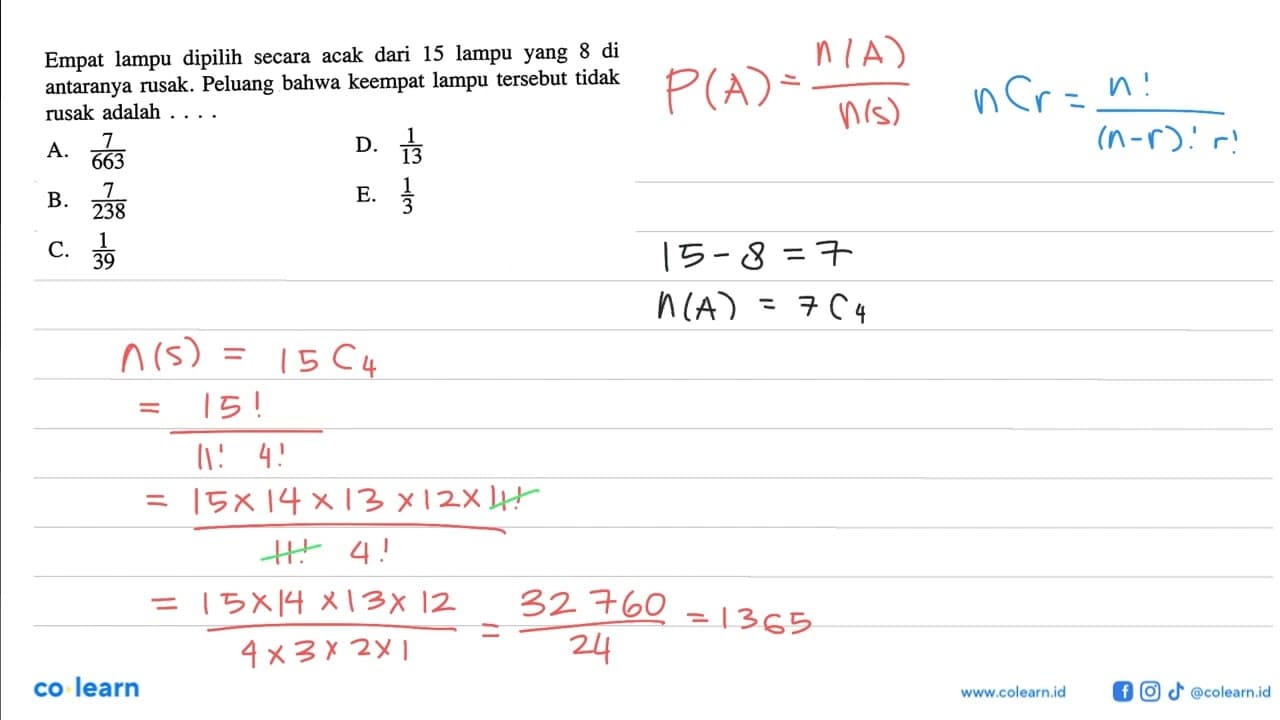 Empat lampu dipilih secara acak dari 15 lampu yang 8 di
antaranya rusak. Peluang bahwa keempat lampu tersebut tidak
rusak adalah . . . .
A. 7/663
B. 7/238
C. 1/39
D. 1/13
E. 1/3
P(A) = n(A)/n(s)
nCr = n!/(n-r)! r!
15 - 8 = 7
n(A) = 7C4
n(s) = 15C4
= 15!/11! 4!
= 15 × 14 × 13 × 12 × 11!/11! 4!
= 15 × 14 × 13 × 12/4 × 3 × 2 × 1 = 32 760/24 = 1365
co learn
www.colearn.id
@colearn.id